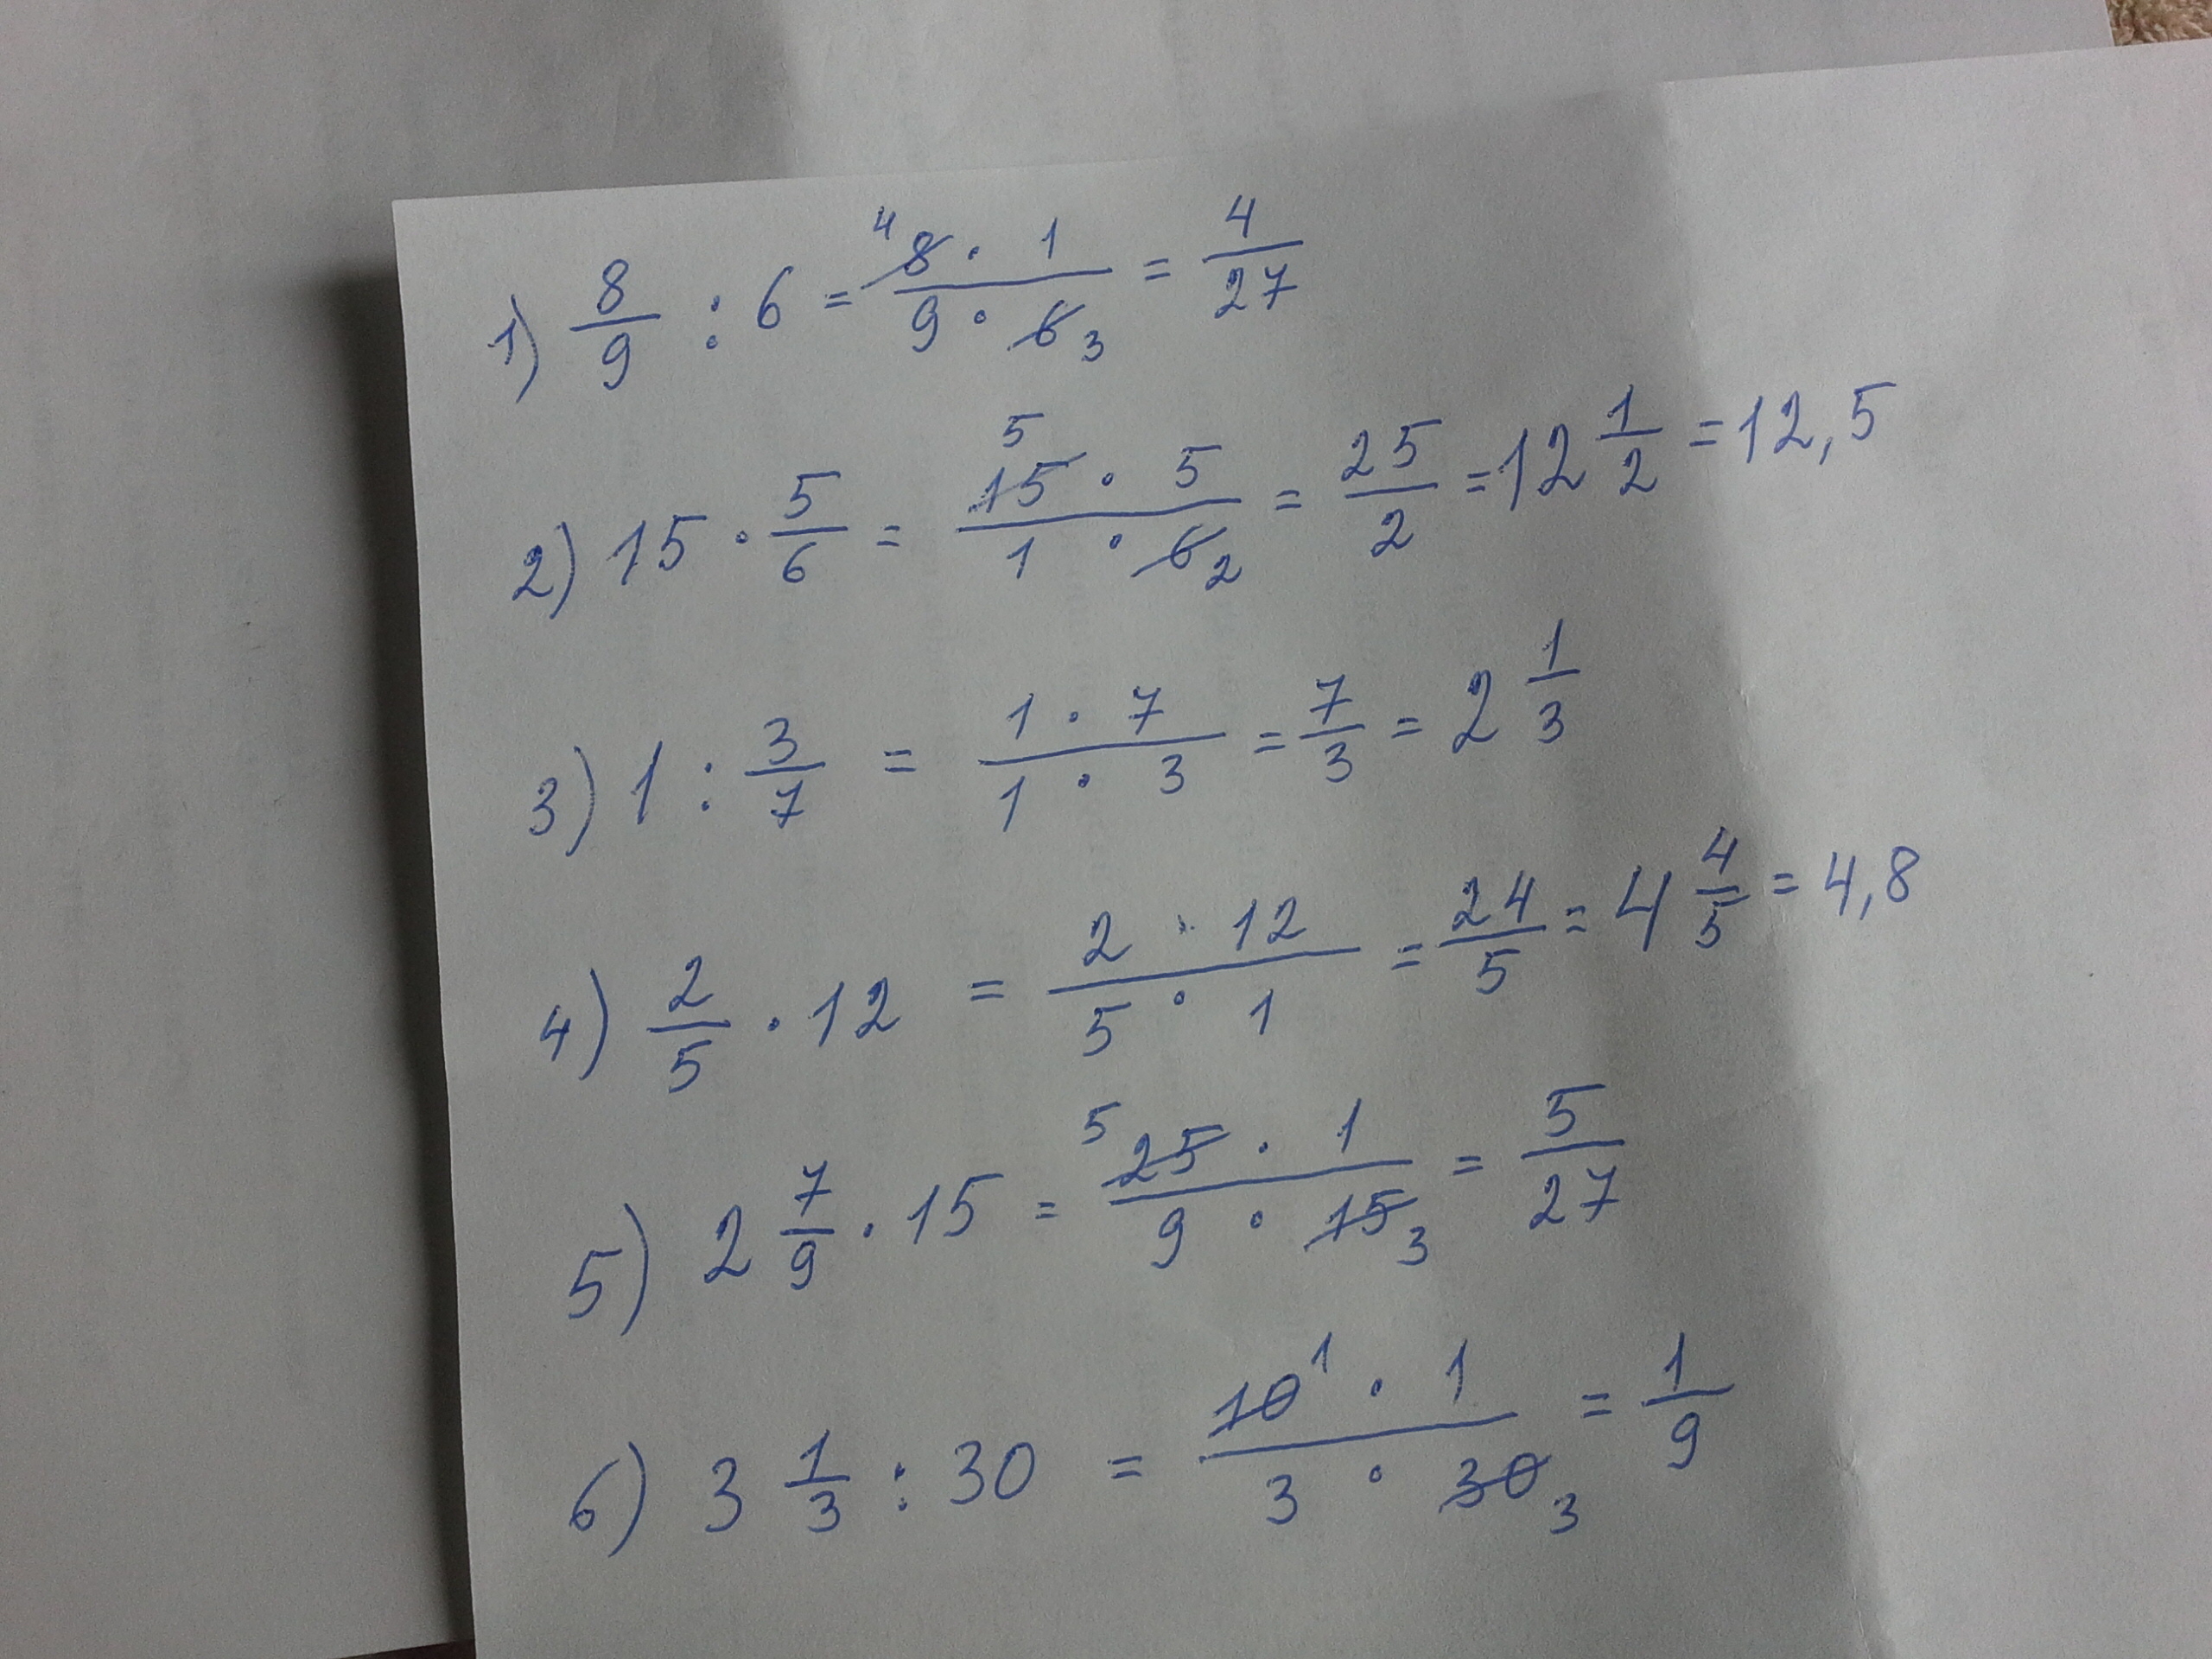 1) 8/9 : 6 = ⁴8 · 1 / 9 · 6₃ = 4/27
2) 15 · 5/6 = ⁵15 · 5 / 1 · 6₂ = 25/2 = 12 1/2 = 12,5
3) 1 : 3/7 = 1 · 7 / 1 · 3 = 7/3 = 2 1/3
4) 2/5 · 12 = 2 · 12 / 5 · 1 = 24/5 = 4 4/5 = 4,8
5) 2 7/9 · 15 = ⁵25 · 1 / 9 · 15₃ = 5/27
6) 3 1/3 : 30 = 10¹ · 1 / 3 · 30₃ = 1/9